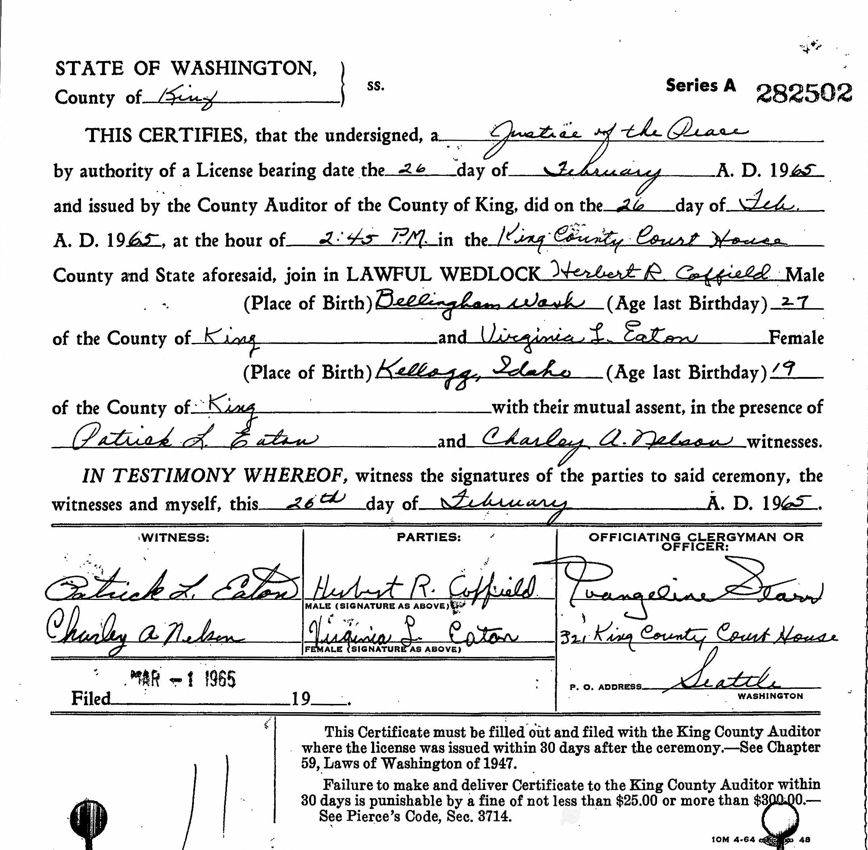 STATE OF WASHINGTON,
County of King ss.
Series A 282502
THIS CERTIFIES, that the undersigned, a Justice of the Peace
by authority of a License bearing date the 26 day of February A. D. 1965
and issued by the County Auditor of the County of King, did on the 26 day of Feb.
A. D. 1965, at the hour of 2:45 P.M. in the King County Court House
County and State aforesaid, join in LAWFUL WEDLOCK Herbert R. Coffield Male
(Place of Birth) Bellingham Wash (Age last Birthday) 27
of the County of King and Virginia L. Eaton Female
(Place of Birth) Kellogg, Idaho (Age last Birthday) 19
of the County of King with their mutual assent, in the presence of
Patrick L. Eaton and Charley A. Nelson witnesses.
IN TESTIMONY WHEREOF, witness the signatures of the parties to said ceremony, the
witnesses and myself, this 26th day of February A. D. 1965.
WITNESS:
Patrick L. Eaton
Charley A Nelson
PARTIES:
Herbert R. Coffield
MALE (SIGNATURE AS ABOVE)
Virginia L. Eaton
FEMALE (SIGNATURE AS ABOVE)
OFFICIATING CLERGYMAN OR
OFFICER:
Evangeline Starr
321 King County Court House
P. O. ADDRESS Seattle
WASHINGTON
MAR -1 1965
Filed 19 .
This Certificate must be filled out and filed with the King County Auditor
where the license was issued within 30 days after the ceremony.—See Chapter
59, Laws of Washington of 1947.
Failure to make and deliver Certificate to the King County Auditor within
30 days is punishable by a fine of not less than $25.00 or more than $300.00.—
See Pierce's Code, Sec. 3714.
10M 4-64 48